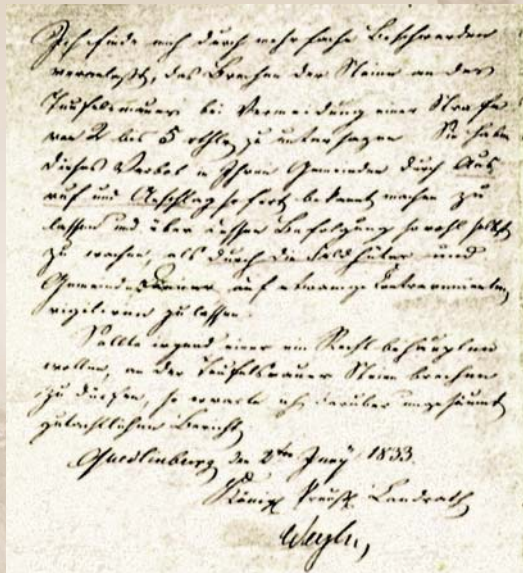 Ich finde mich durch mehrfache Beschwerden
veranlaßt, das Brechen der Steine an der
Teufelsmauer bei Vermeidung einer Strafe
von 2 bis 5 rthlr zu untersagen Sie haben
dieses Verbot in Ihren Gemeinden durch Aus
ruf und Anschlag sofort bekannt machen zu
lassen und über dessen Befolgung sowohl selbst
zu wachen, als durch die Feldhüter und
Gemeinde Diener auf etwanige Contravenienten
vigiliren zu lassen.
Sollte irgend einer ein Recht behaupten
wollen, an der Teufelsmauer Steine brechen
zu dürfen, so erwarte ich darüber ungesäumt
gutachtlichen Bericht,
Quedlinburg den 2ten Juny 1833.
Königl Preuß. Landrath
Weyhe,